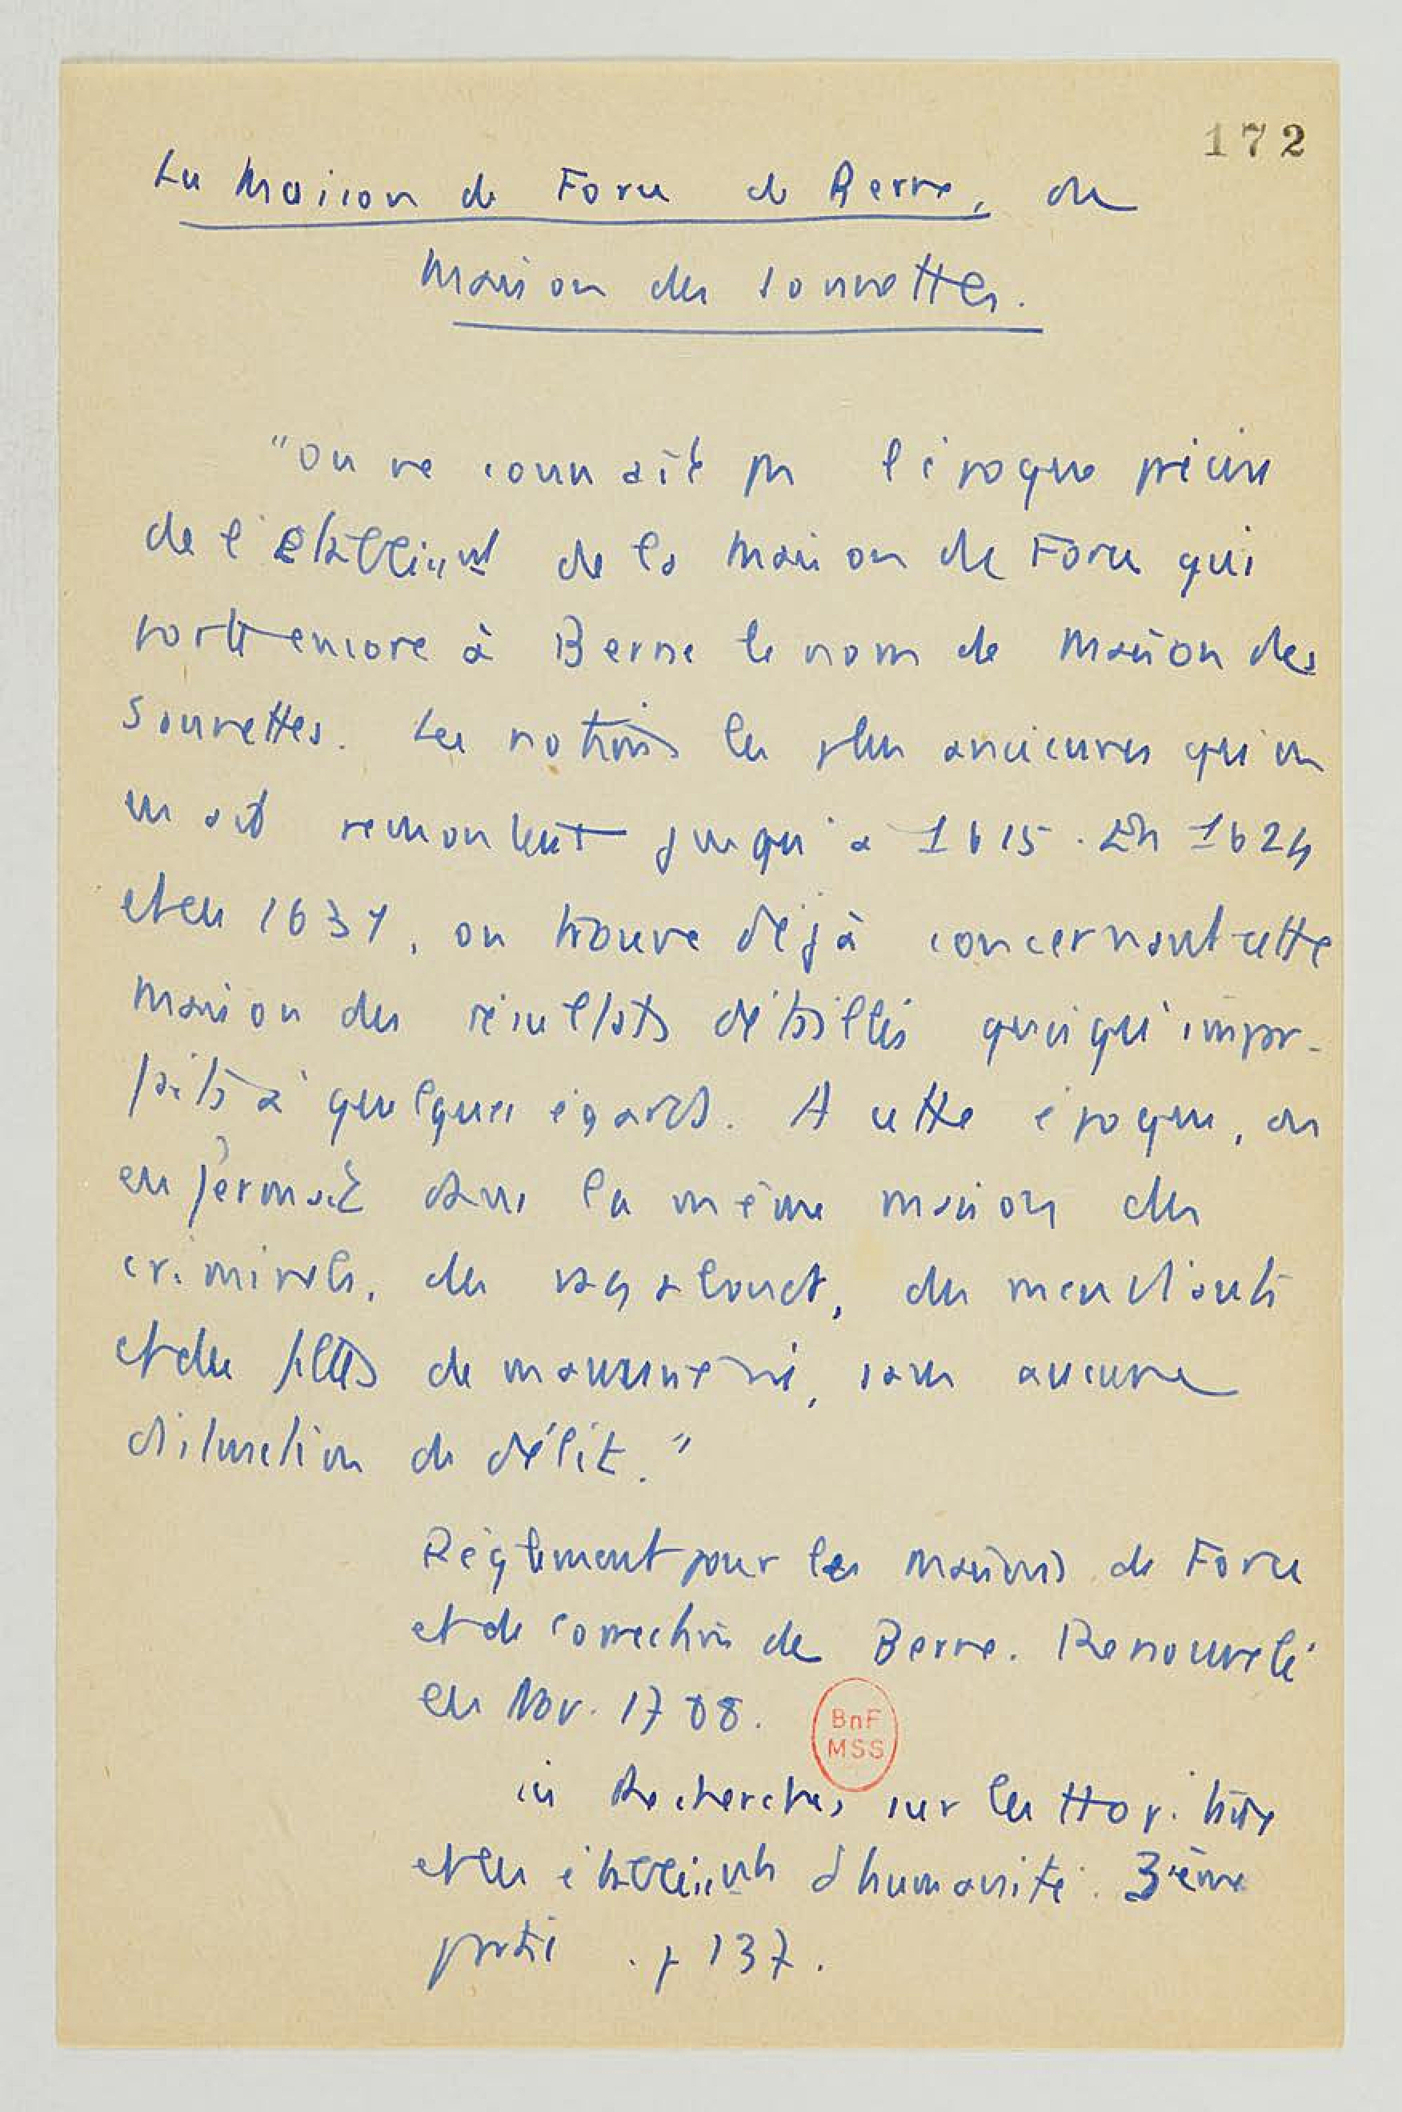 172
La Maison de Force de Berne, ou
Maison des sonnettes.
"On ne connaît pas l'époque précise
de l'établisst de la Maison de Force qui
porte encore à Berne le nom de Maison des
Sonnettes. Les notions les plus anciennes qu'on
en ait remontent jusqu'à 1615. En 1624
et en 1637, on trouve déjà concernant cette
maison des résultats détaillés quoiqu'impar-
faits à quelques égards. A cette époque, on
enfermait dans la même maison des
criminels, des vagabonds, des mendiants
et des filles de mauvaise vie, sans aucune
distinction de délit."
Règlement pour les maisons de Force
et de correction de Berne. Renouvelé
en Nov. 1788.
in Recherches sur les Hopitaux
et les établissts d'humanité. 3ème
partie. p 137.
BnF
MSS